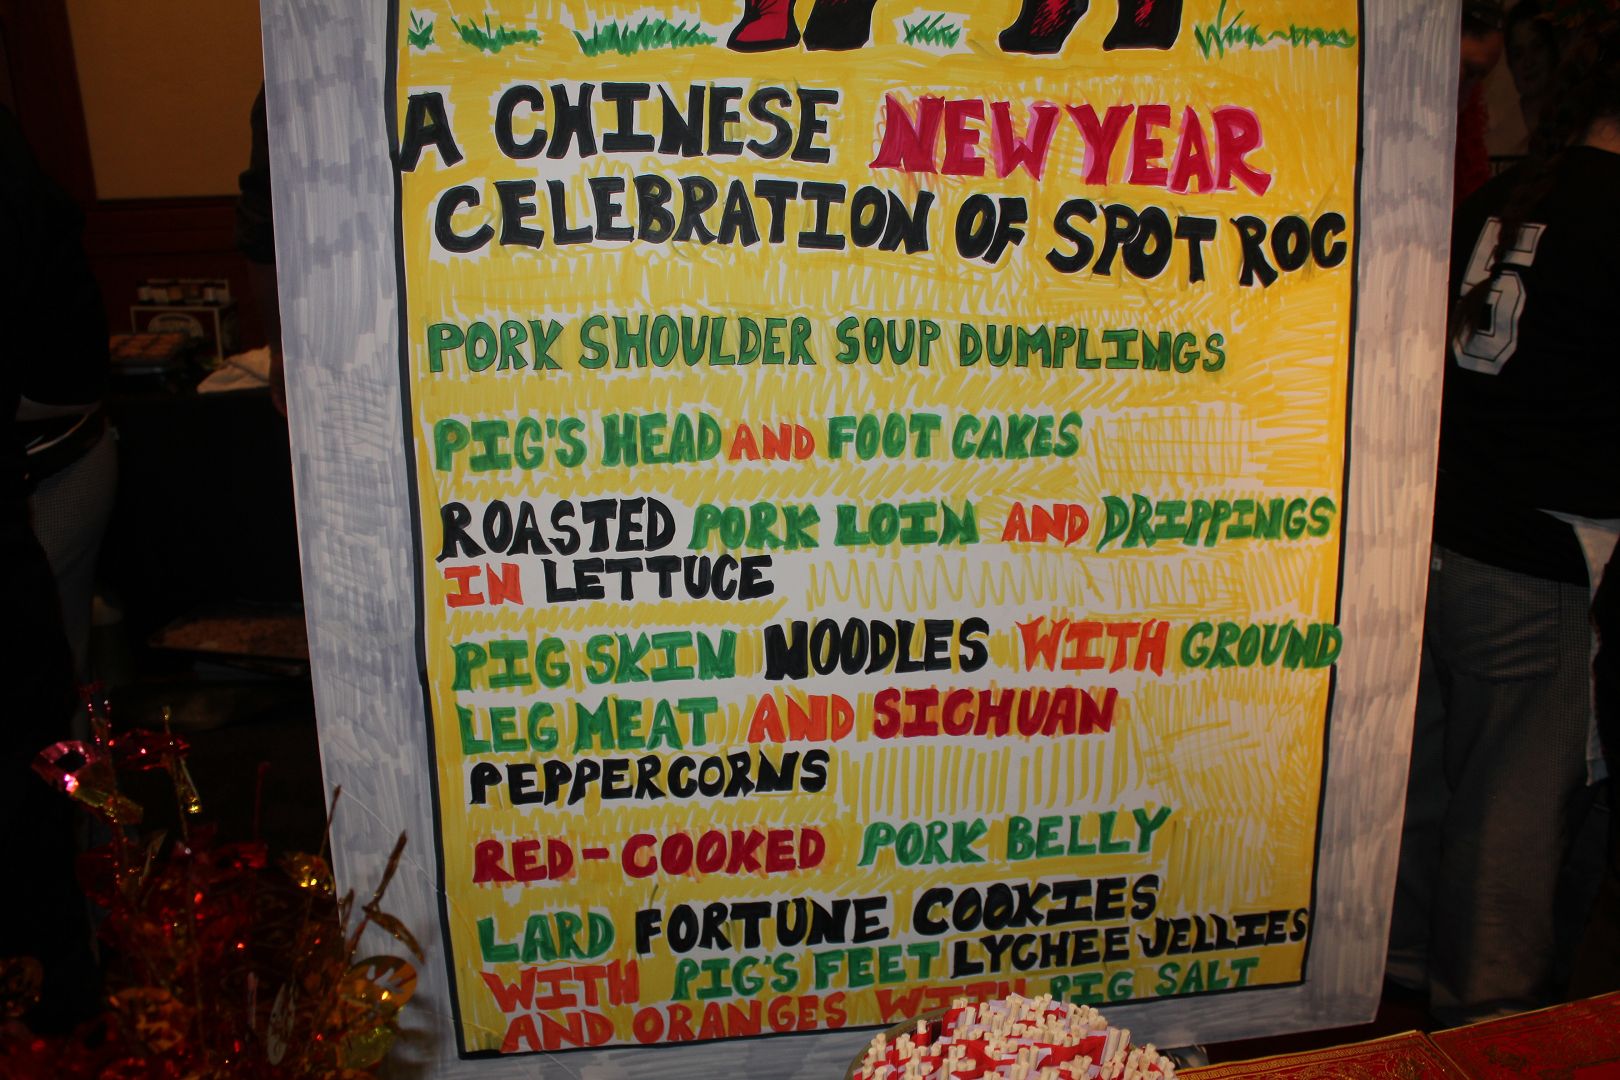 A CHINESE NEW YEAR
CELEBRATION OF SPOT ROC
PORK SHOULDER SOUP DUMPLINGS
PIG'S HEAD AND FOOT CAKES
ROASTED PORK LOIN AND DRIPPINGS
IN LETTUCE
PIG SKIN NOODLES WITH GROUND
LEG MEAT AND SICHUAN
PEPPERCORNS
RED-COOKED PORK BELLY
LARD FORTUNE COOKIES
WITH PIG'S FEET LYCHEE JELLIES
AND ORANGES WITH PIG SALT
5